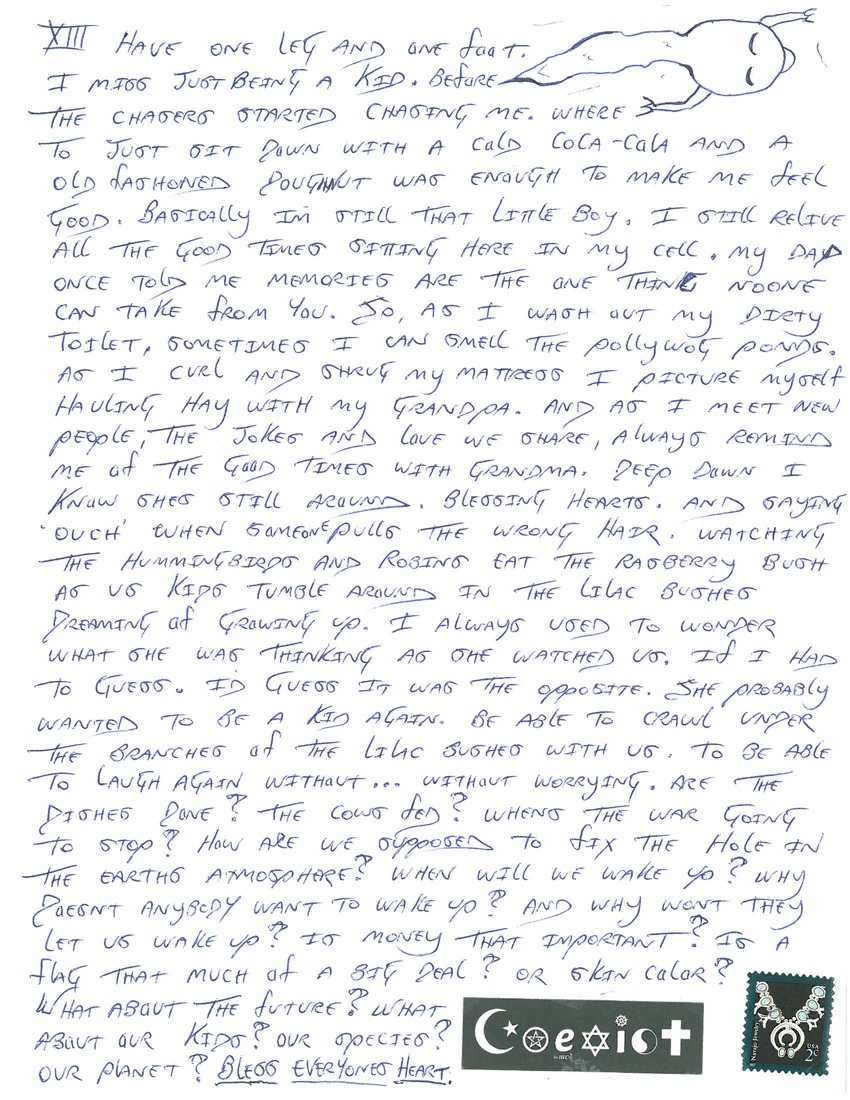 XIII HAVE ONE LEG AND ONE foot.
I MISS JUST BEING A KID. BEfORE
THE CHASERS STARTED CHASING ME. WHERE
TO JUST SIT DOWN WITH A COLD COCA-COLA AND A
OLD fASHONED DOUGHNUT WAS ENOUGH TO MAKE ME fEEL
GOOD. BASICALLY IM STILL THAT LITTLE BOY. I STILL RELIVE
ALL THE GOOD TIMES SITTING HERE IN MY CELL. MY DAD
ONCE TOLD ME MEMORIES ARE THE ONE THING NOONE
CAN TAKE fROM YOU. SO, AS I WASH OUT MY DIRTY
TOILET, SOMETIMES I CAN SMELL THE POLLYWOG PONDS.
AS I CURL AND SHRUG MY MATTRESS I PICTURE MYSELf
HAULING HAY WITH MY GRANDPA. AND AS I MEET NEW
PEOPLE, THE JOKES AND LOVE WE SHARE, ALWAYS REMIND
ME Of THE GOOD TIMES WITH GRANDMA. DEEP DOWN I
KNOW SHES STILL AROUND. BLESSING HEARTS. AND SAYING
'OUCH' WHEN SOMEONE PULLS THE WRONG HAIR. WATCHING
THE HUMMINGBIRDS AND ROBINS EAT THE RASBERRY BUSH
AS US KIDS TUMBLE AROUND IN THE LILAC BUSHES
DREAMING Of GROWING UP. I ALWAYS USED TO WONDER
WHAT SHE WAS THINKING AS SHE WATCHED US. If I HAD
TO GUESS. ID GUESS IT WAS THE OPPOSITE. SHE PROBABLY
WANTED TO BE A KID AGAIN. BE ABLE TO CRAWL UNDER
THE BRANCHES Of THE LILAC BUSHES WITH US. TO BE ABLE
TO LAUGH AGAIN WITHOUT... WITHOUT WORRYING. ARE THE
DISHES DONE? THE COWS fED? WHENS THE WAR GOING
TO STOP? HOW ARE WE SUPPOSED TO fIX THE HOLE IN
THE EARTHS ATMOSPHERE? WHEN WILL WE WAKE UP? WHY
DOESNT ANYBODY WANT TO WAKE UP? AND WHY WONT THEY
LET US WAKE UP? IS MONEY THAT IMPORTANT? IS A
fLAG THAT MUCH Of A BIG DEAL? OR SKIN COLOR?
WHAT ABOUT THE fUTURE? WHAT
ABOUT OUR KIDS? OUR SPECIES?
OUR PLANET? BLESS EVERYONES HEART.
Coexist
Navajo Jewelry
USA
2¢